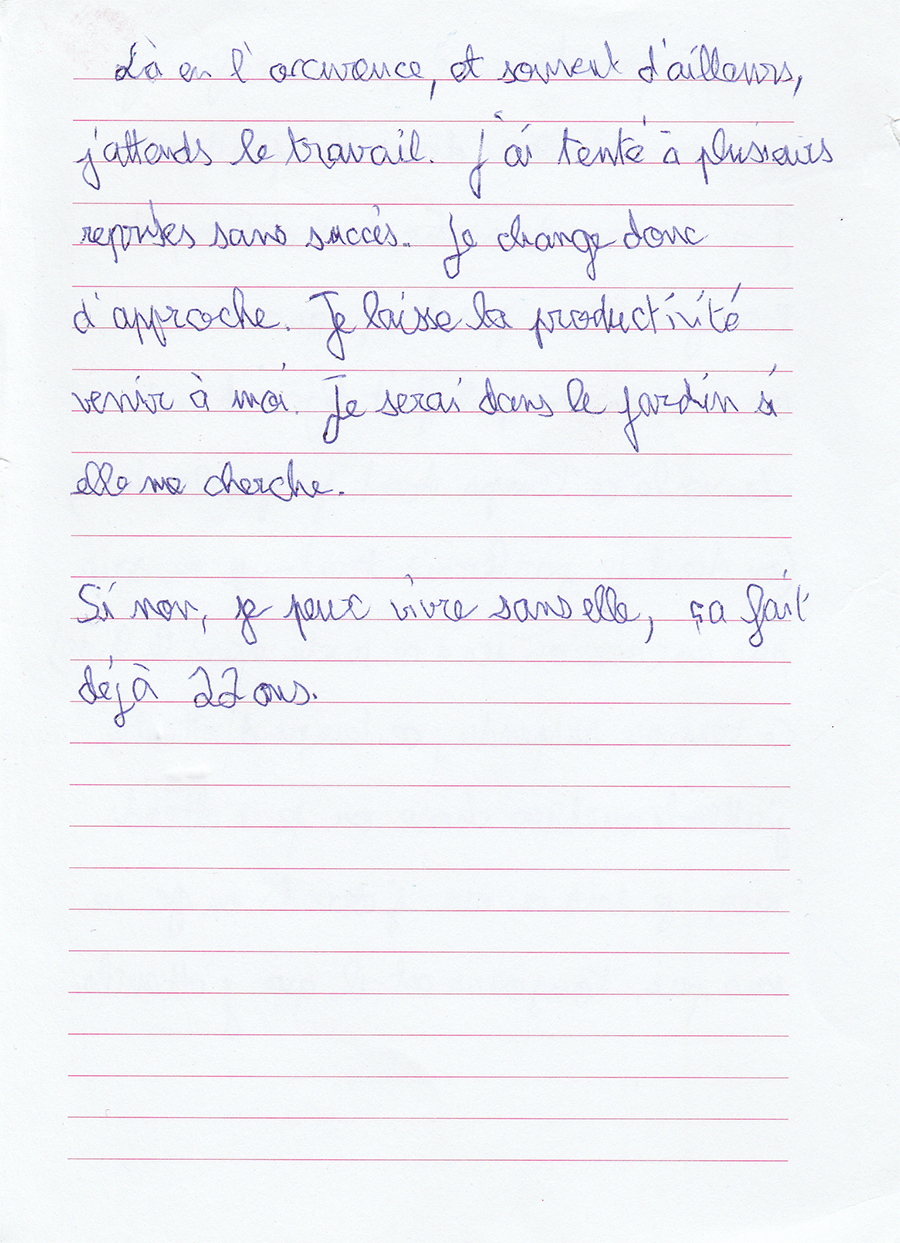 Là en l'occurence, et souvent d'ailleurs,
j'attends le travail. J'ai tenté à plusieurs
reprises sans succès. Je change donc
d'approche. Je laisse la productivité
venir à moi. Je serai dans le jardin si
elle me cherche.
Si non, je peux vivre sans elle, ça fait
déjà 22 ans.